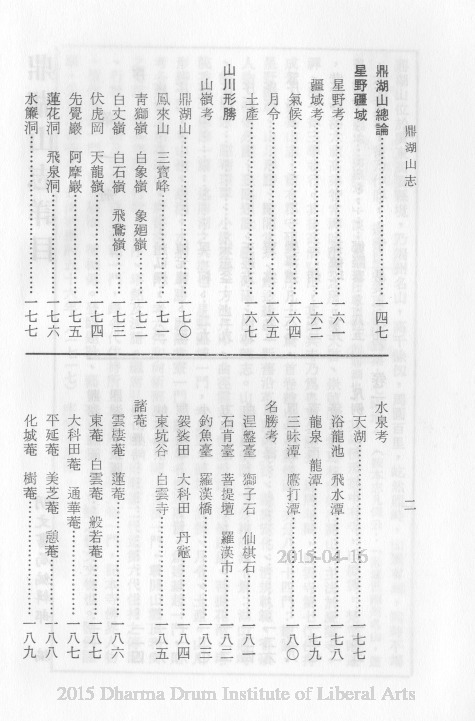 鼎湖山志
鼎湖山總論……一四七
星野疆域
星野考……一六一
疆域考……一六二
氣候……一六四
月令……一六五
土產……一六七
山川形勝
山嶺考
鼎湖山……一七〇
鳳來山 三寶峰……一七一
青獅嶺 白象嶺 象廻嶺……一七二
白丈嶺 白石嶺 飛鵞嶺……一七三
伏虎岡 天龍嶺……一七四
先覺巖 阿摩巖……一七五
蓮花洞 飛泉洞……一七六
水簾洞……一七七
二
水泉考
天湖……一七七
浴龍池 飛水潭……一七八
龍泉 龍潭……一七九
三昧潭 鷹打潭……一八〇
名勝考
涅盤臺 獅子石 仙棋石……一八一
石肯臺 菩提壇 羅漢市……一八二
釣魚臺 羅漢橋……一八三
袈裟田 大科田 丹竈……一八四
東坑谷 白雲寺……一八五
諸菴
雲棲菴 蓮菴……一八六
東菴 白雲菴 般若菴……一八七
大科田菴 通華菴……一八七
平延菴 美芝菴 憩菴……一八八
化城菴 樹菴……一八九
2015-04-16
2015 Dharma Drum Institute of Liberal Arts